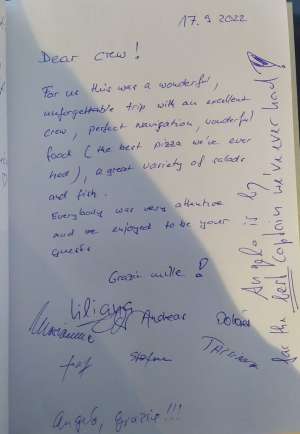 17.9 2022
Dear crew!
For us this was a wonderful,
unforgettable trip with an excellent
crew, perfect navigation, wonderful
food (the best pizza we've ever
had), a great variety of salads
and fish.
Everybody was very attentive
and we enjoyed to be your
guests
Grazie mille!
Liliana
Marianne Andreas Dolores
Stefan
Angelo, Grazie!!!
Angelo is by
far the best Captain we've ever had!